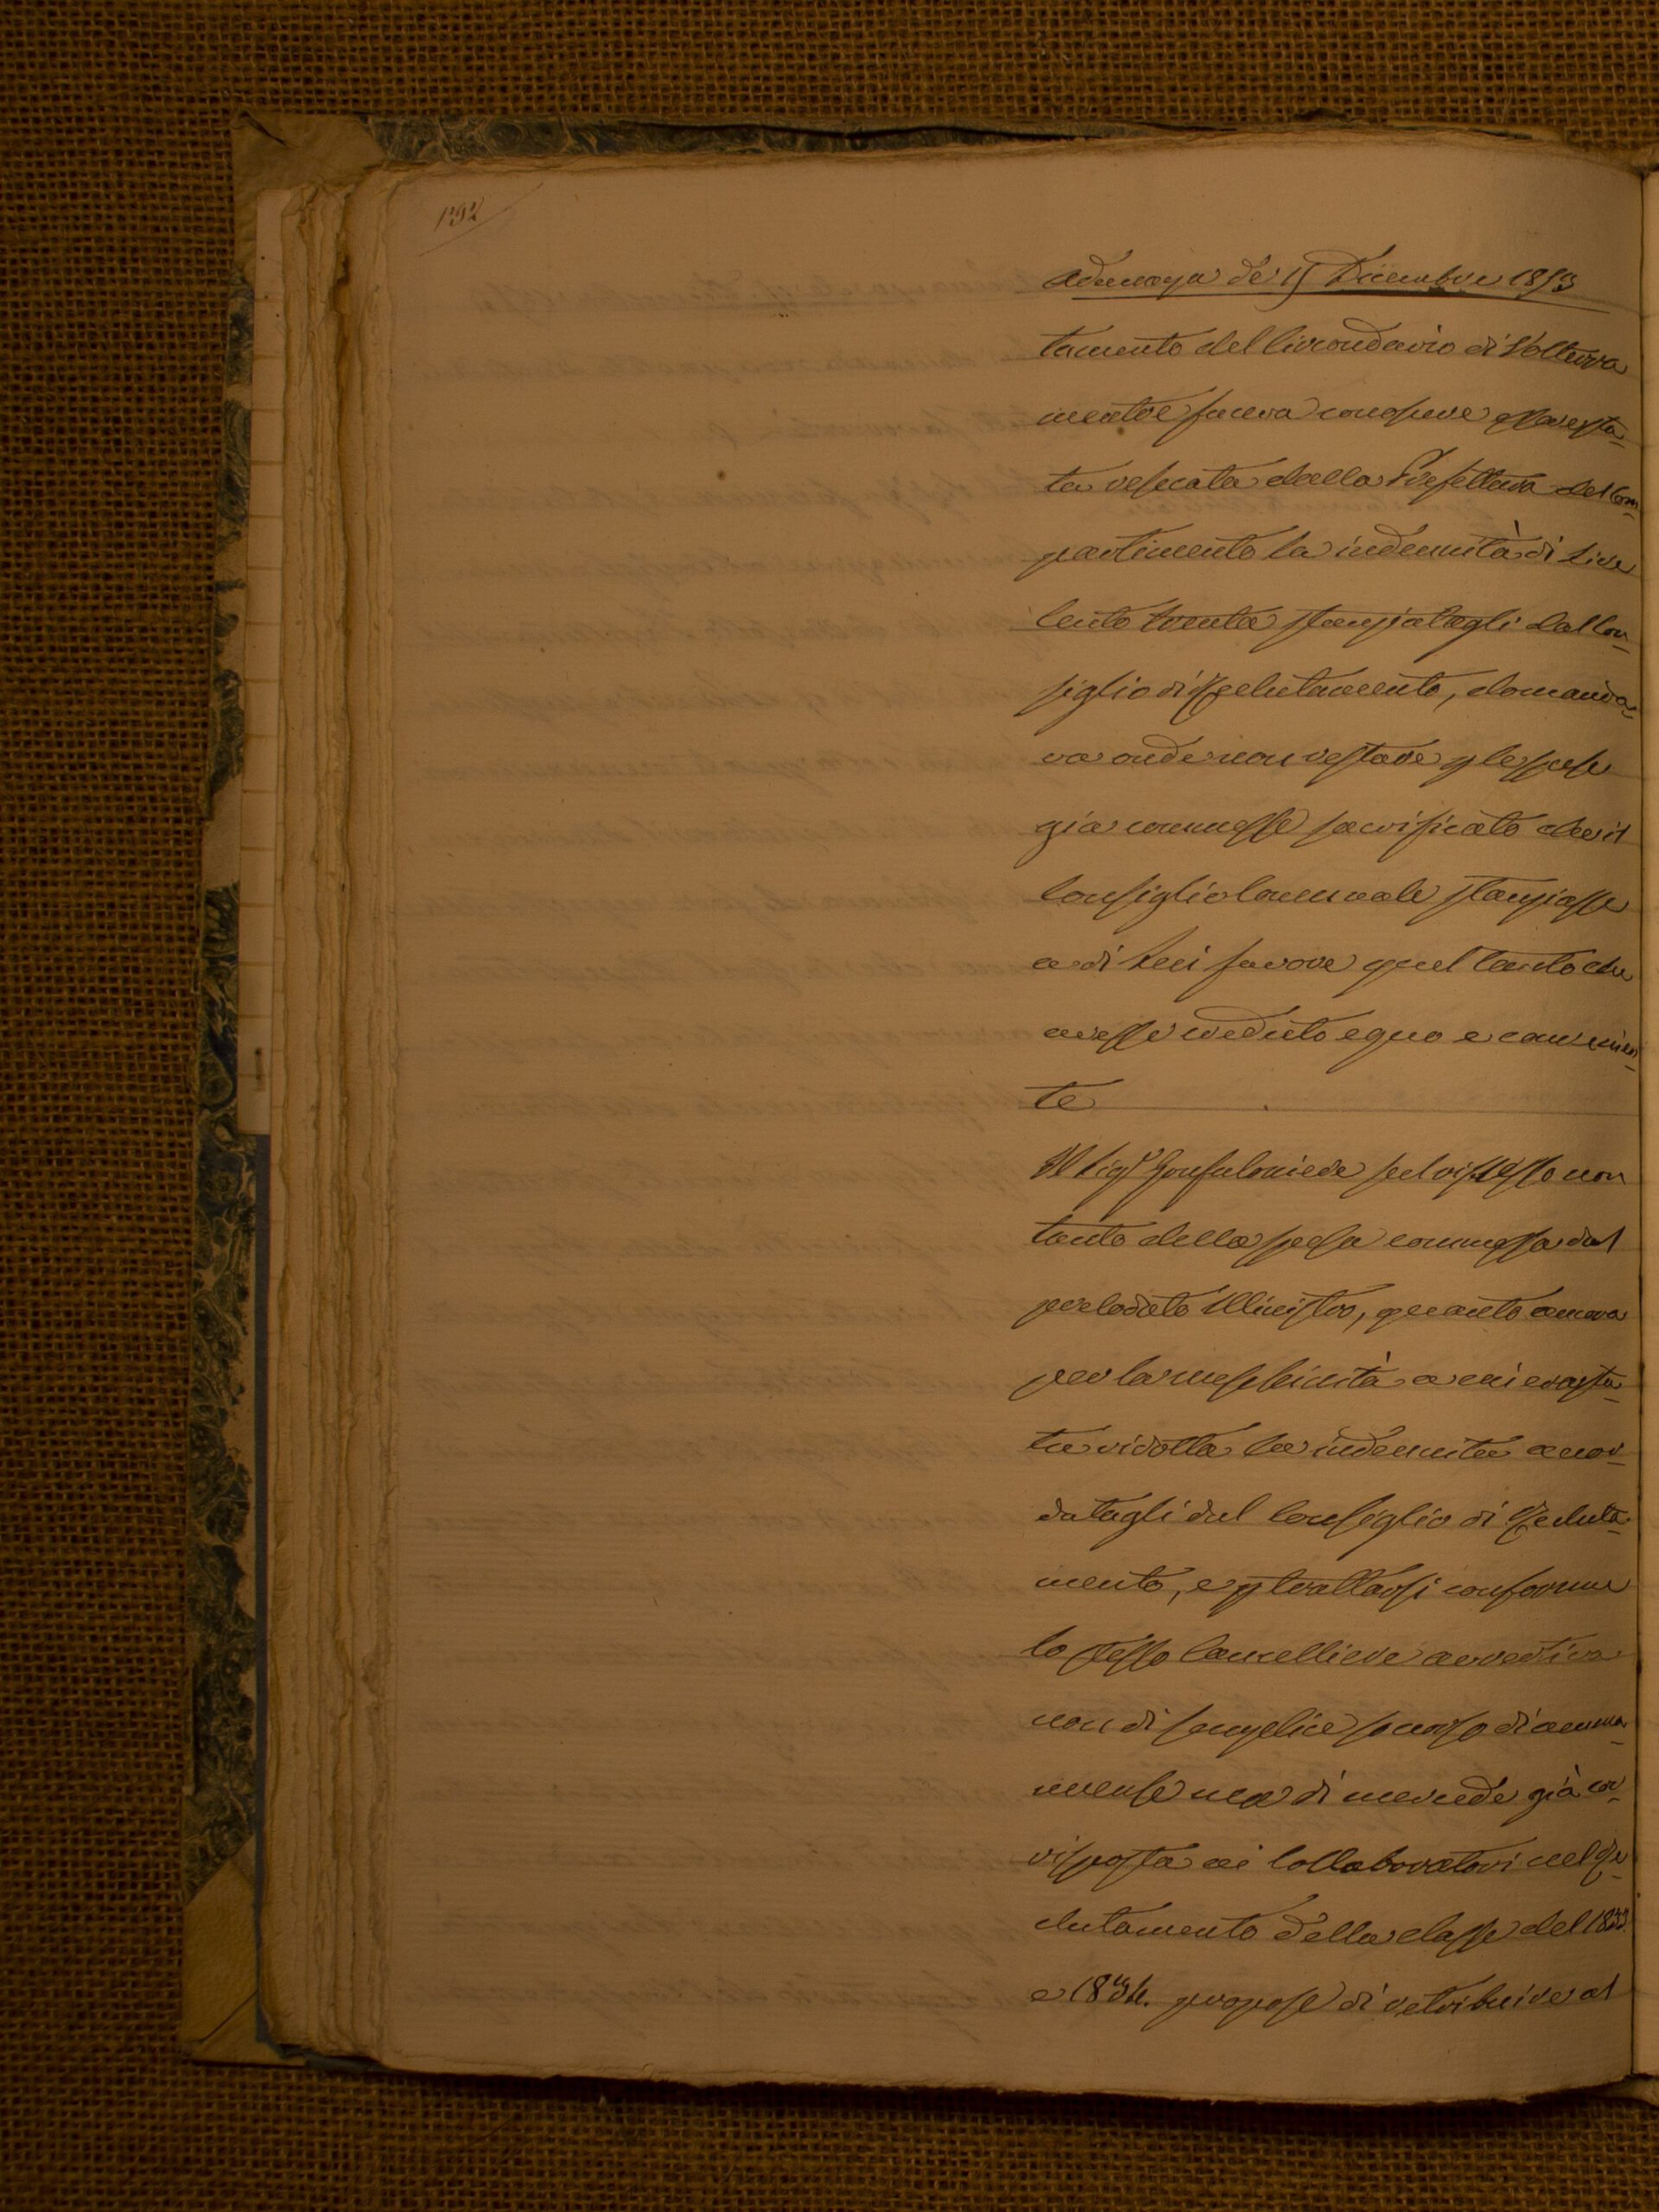 192
Adunanza de' 15 Dicembre 1853
tamento del Circondario di Volterra
mentre faceva conoscere essere sta-
ta resecata dalla Prefettura del Com-
partimento la indennità di Lire
Cento trenta stanziatagli dal Con-
siglio di Reclutamento, domanda-
va onde non restare p le spese
già commesse sacrificato che il
Consiglio Comunale stanziasse
a di Lui favore quel tanto che
avesse creduto equo e convenien-
te
Il Sigr Gonfaloniere sul riflesso non
tanto della spesa commessa dal
prelodato Ministro, quanto ancora
per la meschinità a cui era sta-
ta ridotta la indennità accor-
datagli dal Consiglio di Recluta-
mento, e p trattarsi conforme
lo stesso Cancelliere avvertiva
non di semplice sconto di ammanuense
ma di mercede già cor-
risposta ai Collaboratori nel Re-
clutamento della classe del 1833.
e 1834. propose di retribuire al